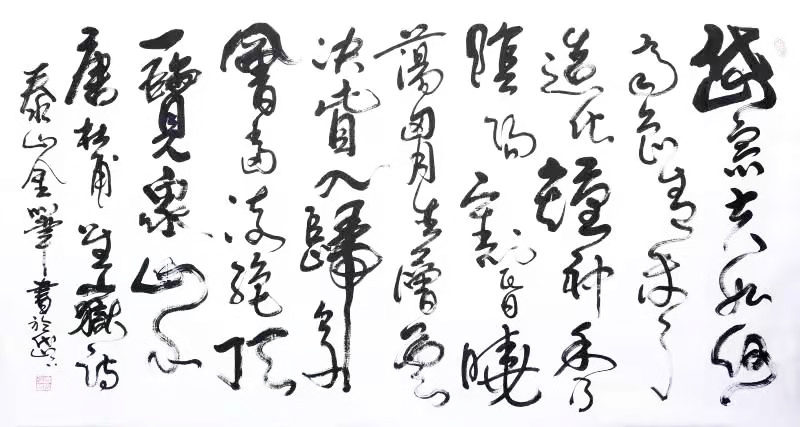 岱宗夫如何
齊魯青未了
造化鍾神秀
陰陽割昏曉
蕩胸生層雲
決眥入歸鳥
會當凌絕頂
一覽衆山小
唐杜甫望嶽詩
泰山金書於岱下